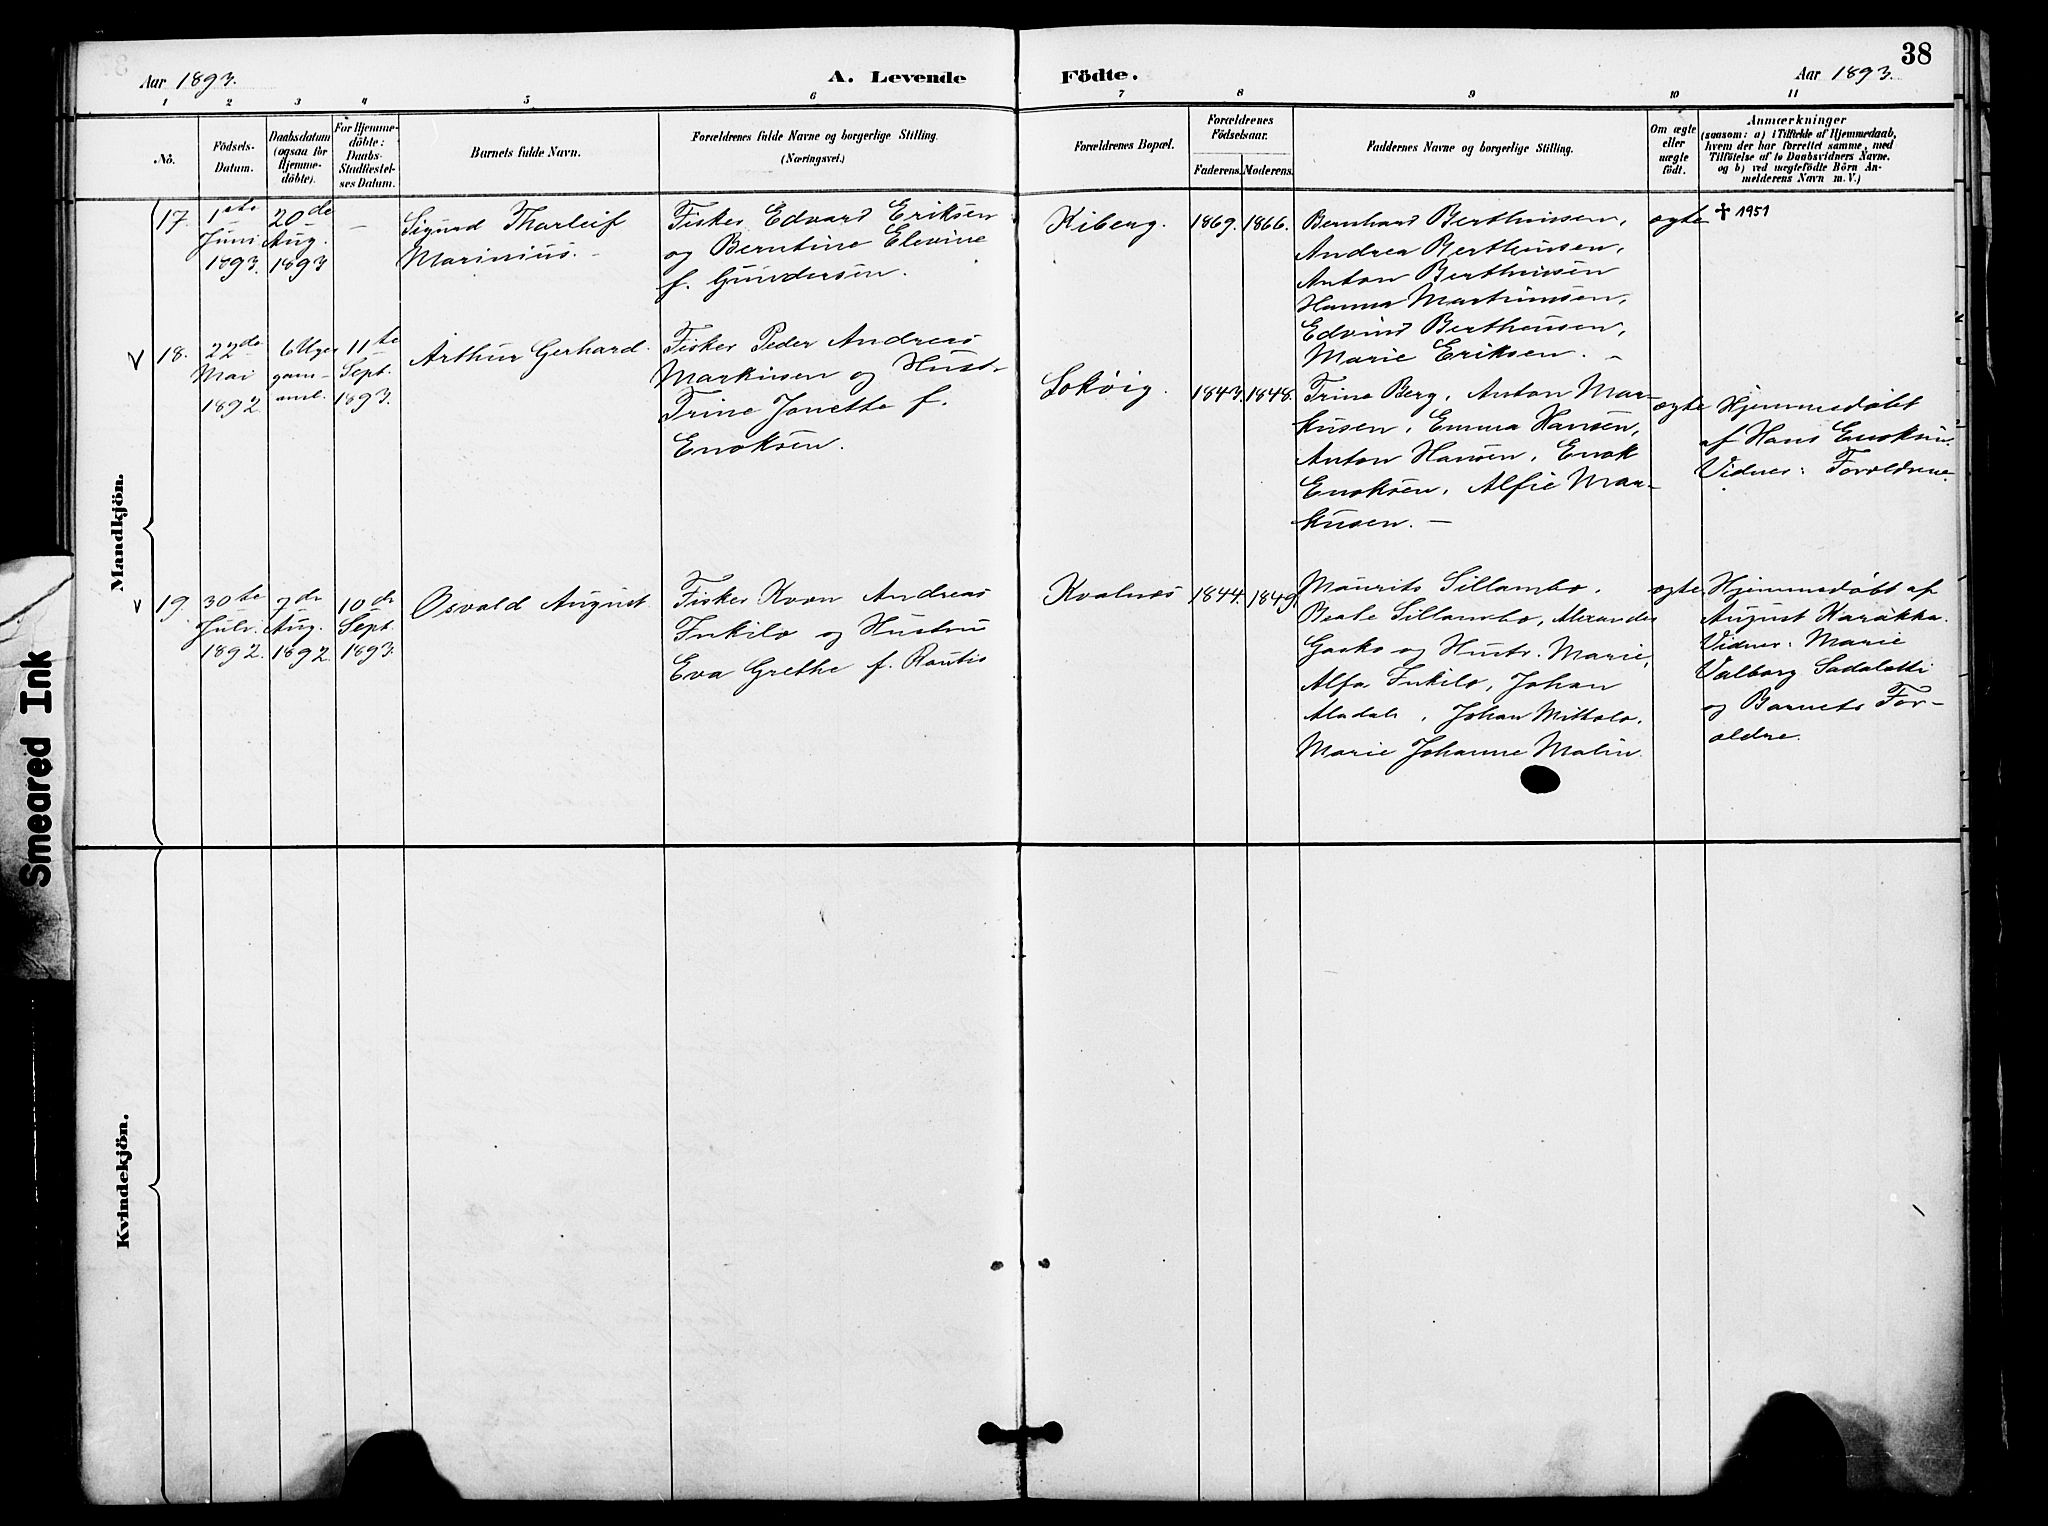 38
Aar 1893.
A. Levende Födte.
Aar 1893.
1 2 3 4 5 6 7 8 9 10 11
Nô.
Födsels-
Datum.
Daabsdatum
(ogsaa for
Hjemme-
döbte).
For Hjemme-
döbte:
Daabs-
Stadfæstel-
ses Datum.
Barnets fulde Navn.
Forældrenes fulde Navne og borgerlige Stilling.
(Næringsvei.)
Forældrenes Bopæl.
Forældrenes
Födselsaar.
Faderens. Moderens.
Faddernes Navne og borgerlige Stilling.
Om ægte
eller
uægte
födt.
Anmærkninger
(saasom: a) i Tilfælde af Hjemmedaab,
hvem der har forrettet samme, med
Tilföielse af to Daabsvidners Navne,
og b) ved uægtefödte Börn An-
melderens Navn m. V.)
Mandkjön.
17.
1ste
Juni
1893.
20de
Aug.
1893
-
Sigurd Thorleif
Marinius. -
Fisker Edvard Eriksen
og Berntine Elevine
f. Gundersen.
Kiberg.
1869. 1866.
Bernhard Berthinsen,
Andrea Berthinsen,
Anton Berthinsen
Hanna Martinusen,
Edvind Berthensen,
Marie Eriksen. -
ægte
✝ 1951
V 18.
22de
Mai
1892.
6 Uger
gam-
mel.
11te
Sept.
1893.
Arthur Gerhard.
Fisker Peder Andreas
Markusen og Hust-
Trine Jonette f.
Enoksen.
1843. 1848.
Trine Berg, Anton Mar-
kusen, Emma Hansen,
Anton Hansen, Enok
Enoksen, Alfie Mar-
kusen. -
ægte
Hjemmedøbt
af Hans Enoksen.
Vidner: Forældrene.
V 19.
30te
Juli
1892.
7de
Aug.
1892.
10de
Sept.
1893.
Osvald August.
Fisker Kvæn Andreas
Inkilæ og Hustru
Eva Grethe f. Rautio
Kvalnæs
1844. 1849.
Maurits Sillambo,
Beate Sillambo, Alexander
og Hustr. Marie,
Alfa Inkilæ, Johan
Johan
Marie Johanne Malin.
ægte.
Hjemmedøbt af
August Karakka.
Vidner: Marie
Valborg
og Barnets For-
ældre.
Kvindekjön.
Smeared Ink